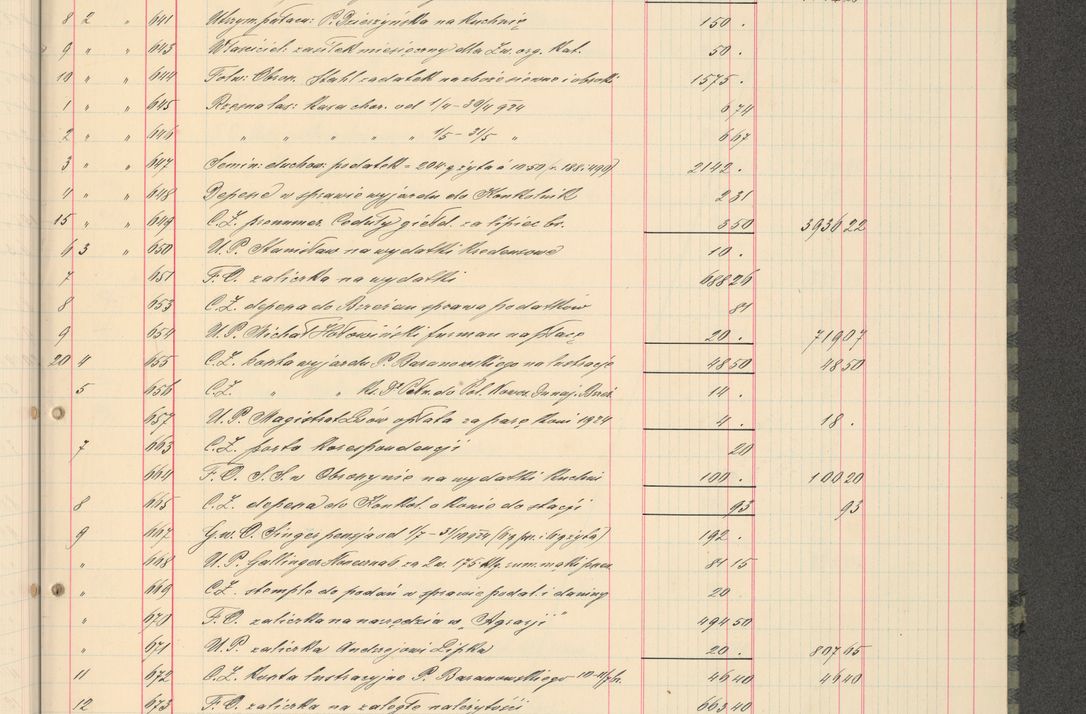 8 2 " 641 P. Dzierzyńska na kuchnię 150 .
9 " " 643 Właściciel: zasiłek miesięczny dla Zw. org. Kat. 50 .
10 " " 644 Folw: Obron. Stahl zadatek na zboże siewne i obroki 1575 .
1 " " 645 od 1/4 - 30/4 924 6,74
2 " " 646 " " " " " 1/5 - 31/5 " 6 67
3 " " 647 Semin: duchow: podatek = 204 q żyta á 10.50 2142 .
4 " " 648 Depesza w sprawie wyjazdu do Konkolnik 2 31
15 " " 649 C.Z. prenumer. Ceduły giełd. za lipiec br. 3 50 3936 22
6 3 " 650 U.P. Stanisław na wydatki kredensowe 10 .
7 651 F.O. zaliczka na wydatki 688 26
8 653 C.Z. depesza do Brzeżan sprawa podatków 81
9 654 U.P. Michał furman na płacę 20 . 719 07
20 4 655 C.Z. koszta wyjazdu P. Baranowskiego na lustrację 48 50 48 50
5 656 C.Z. " " 14 .
657 U.P. Magistrat Lwów opłata za parę koni 1924 4 . 18 .
7 663 C.Z. porto korespondencji 20
664 F.O. S.S. w Obroszynie na wydatki kuchni 100 . 100 20
8 665 C.Z. depesza do Konkol. o konie do stacji 93 93
9 667 G.w.O. Singer pensja od 1/7 - 192 .
" 668 U.P. Gallinger za 2 w. 175 81 15
" 669 C.Z. stemple do podań w sprawie podat. i daniny 20
" 670 F.O. zaliczka na narzędzia w „Agrarji" 494 50
" 671 U.P. zaliczka Andrzejowi Lipka 20 . 807 65
11 672 C.Z. koszta lustracyjne P. Baranowskiego 46 40 46 40
12 673 F.O. zaliczka na zaległe należytości 663 40